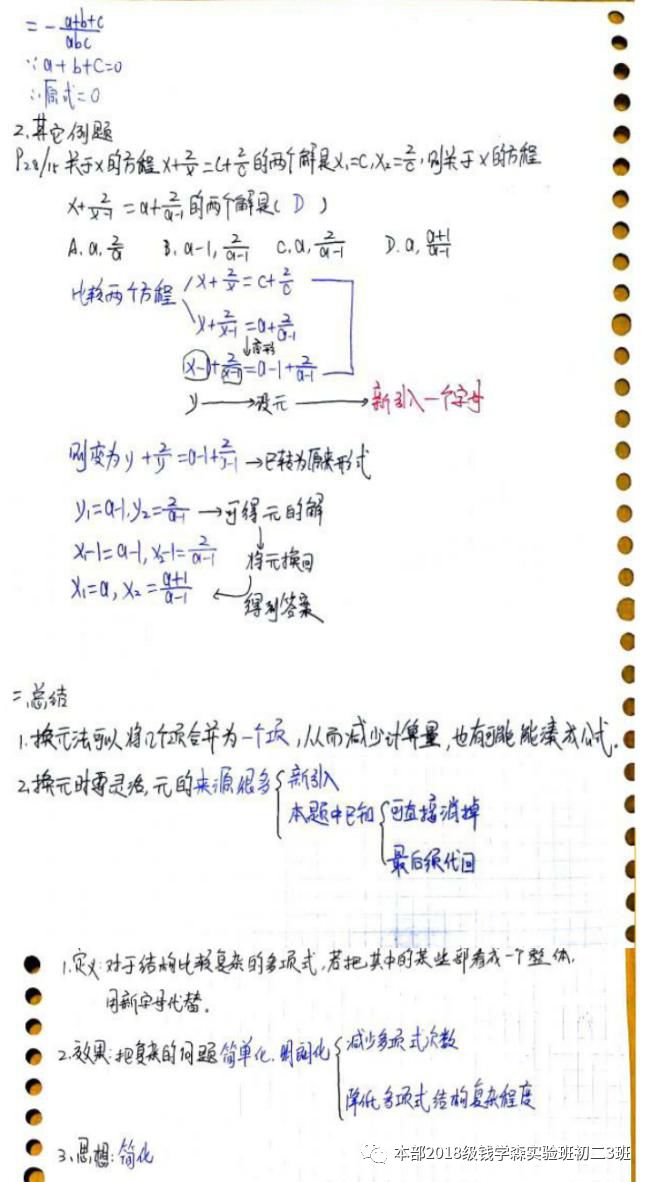 = - (a+b+c)/(abc)
∵ a+b+c=0
∴原式=0
2.其它例题
P28/15 关于x的方程 x+2/x=c+2/c 的两个解是x₁=c,x₂=2/c,则关于x的方程
x+2/(x-1)=a+2/(a-1)的两个解是( D )
A. a, 2/a B. a-1, 2/(a-1) C. a, 2/(a-1) D. a, (a+1)/(a-1)
比较两个方程 x+2/x=c+2/c
x+2/(x-1)=a+2/(a-1)
↓变形
x-1+2/(x-1)=a-1+2/(a-1)
y→设元→新引入一个字母
则变为y+2/y=a-1+2/(a-1)→已转为原来形式
y₁=a-1,y₂=2/(a-1)→可得元的解
x₁-1=a-1,x₂-1=2/(a-1) 将元换回
x₁=a,x₂=(a+1)/(a-1) 得到答案
二,总结
1.换元法可以将几个项合并为一个项,从而减少计算量,也有可能能凑成公式。
2.换元时要灵活,元的来源很多 新引入
本题中已知 可直接消掉
最后须代回
1.定义:对于结构比较复杂的多项式,若把其中的某些部看成一个整体,
用新字母代替。
2.效果:把复杂的问题简单化.明朗化 减少多项式次数
降低多项式结构复杂程度
3.思想:简化
本部2018级钱学森实验班初二3班